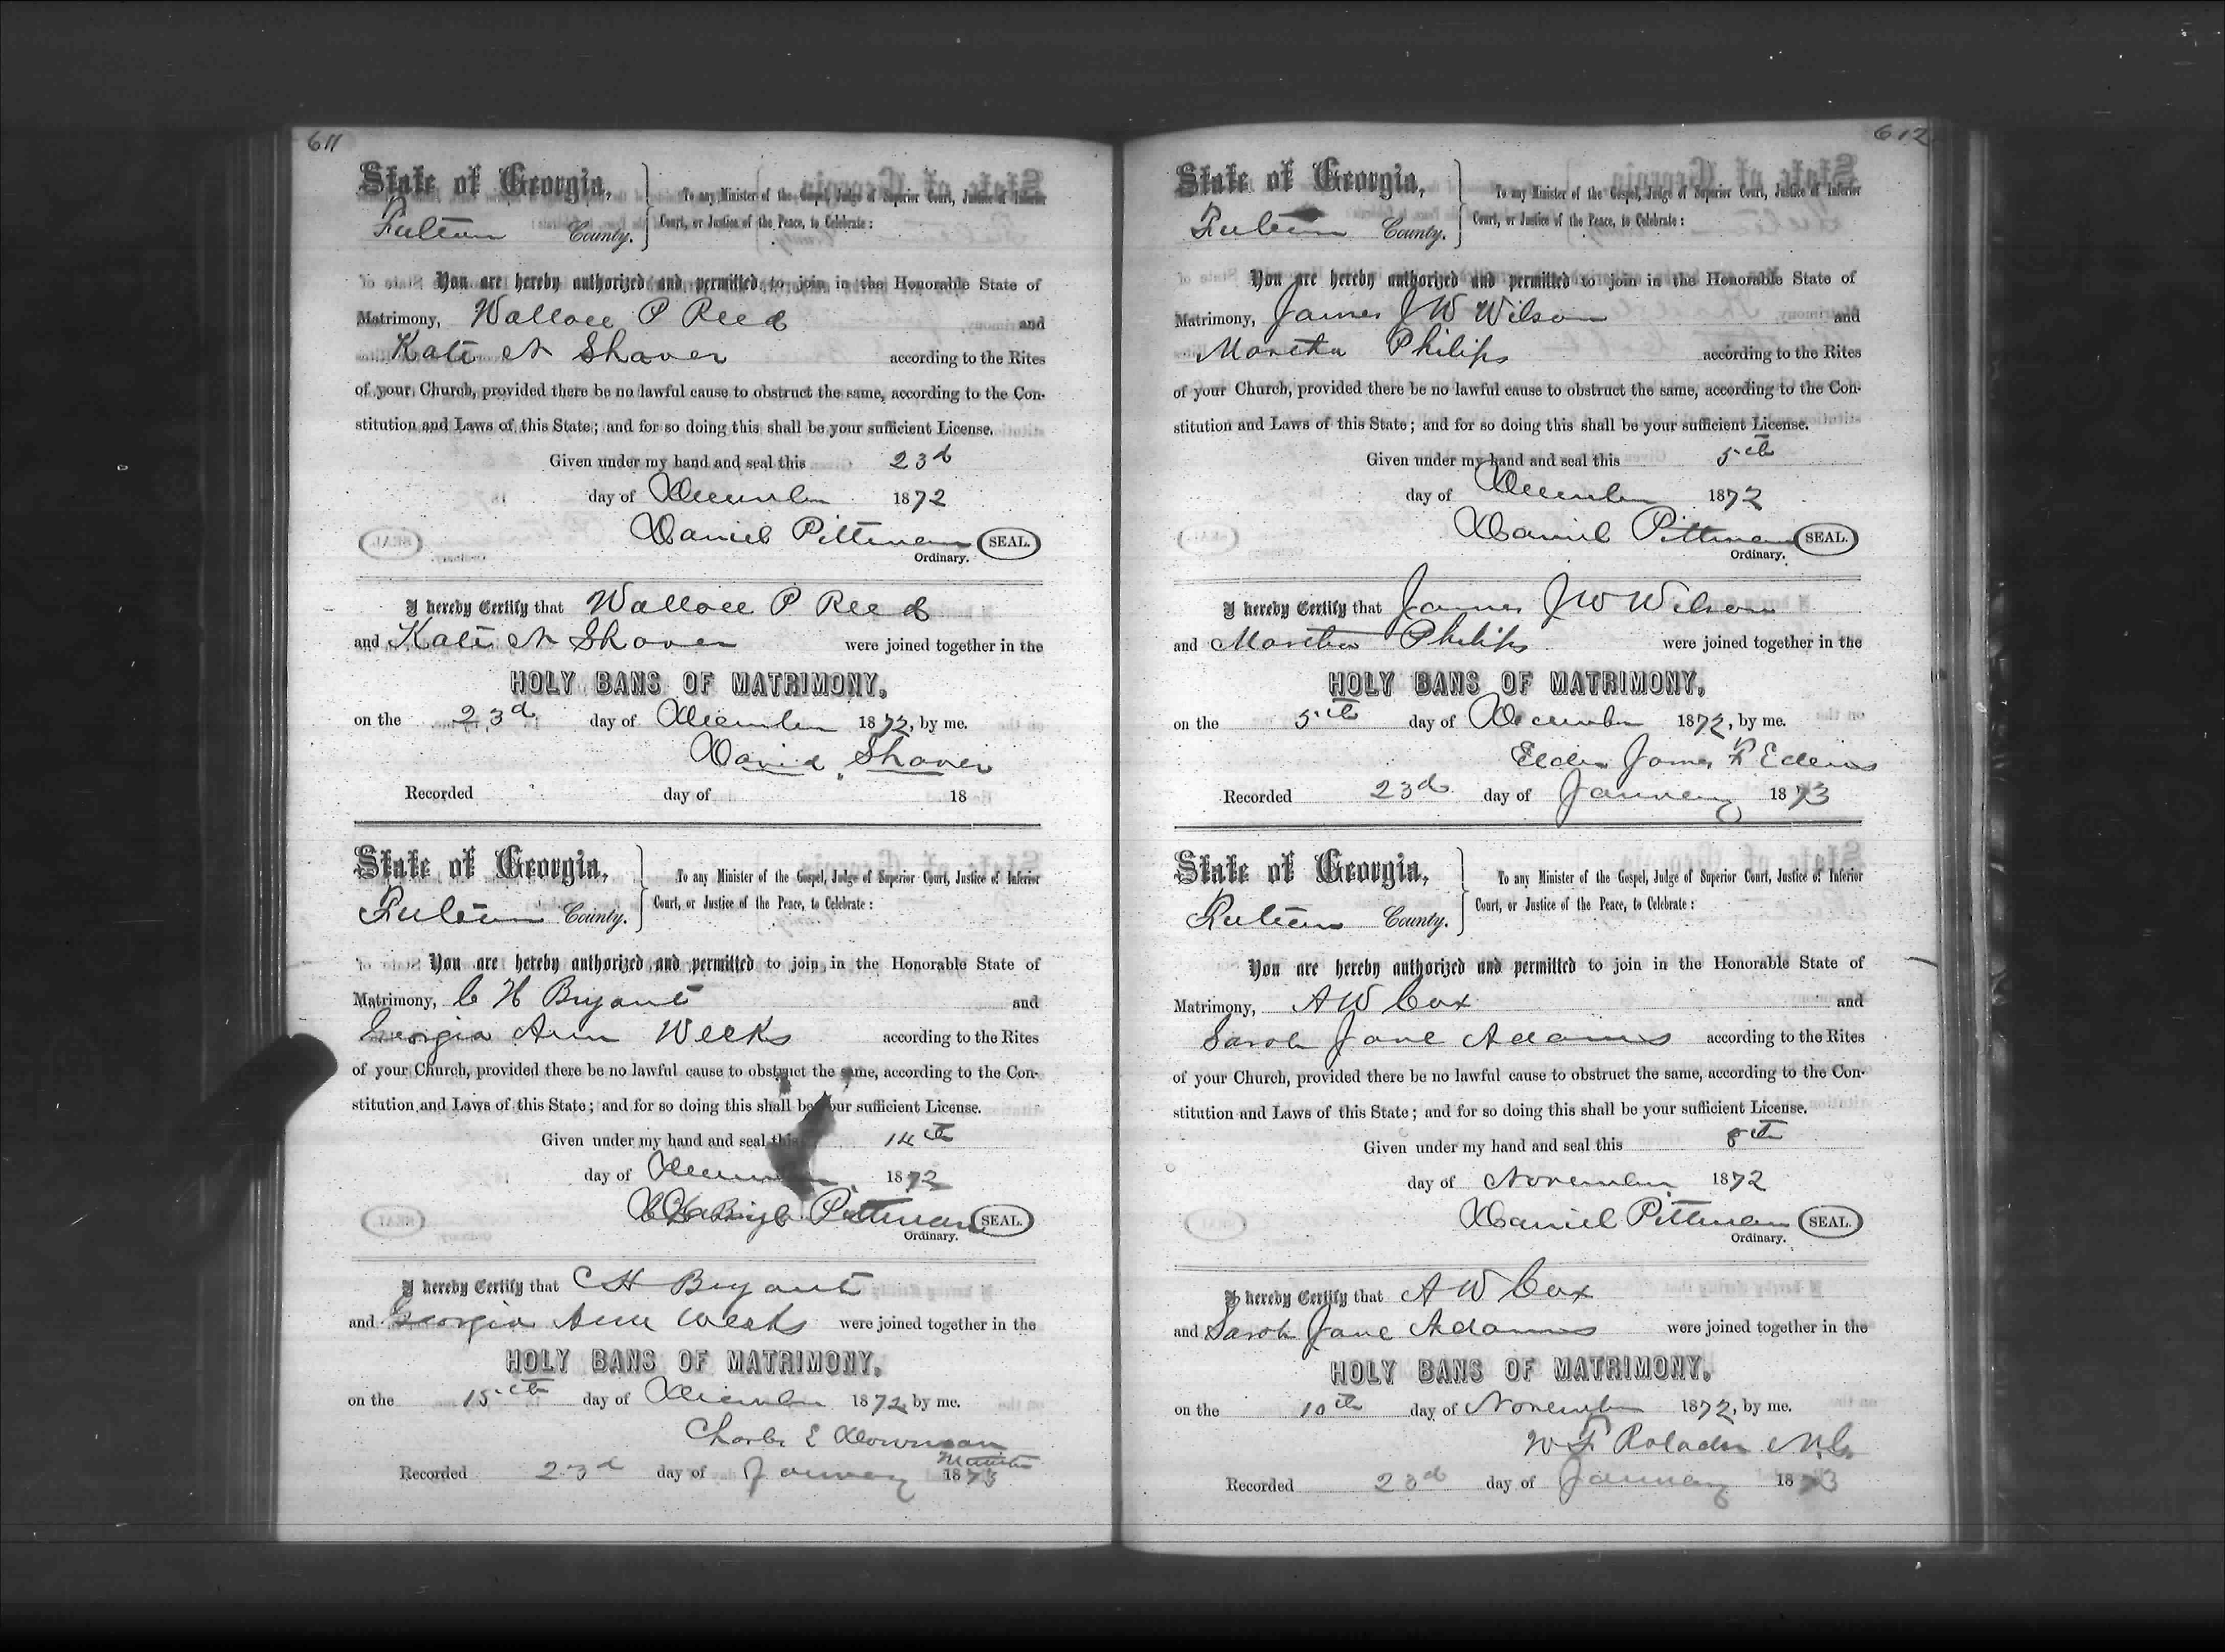 611
State of Georgia,
Fulton County.
To any Minister of the Gospel, Judge of Superior Court, Justice of Inferior
Court, or Justice of the Peace, to Celebrate:
You are hereby authorized and permitted to join in the Honorable State of
Matrimony, Wallace P Reed and
Kate N Shaver according to the Rites
of your Church, provided there be no lawful cause to obstruct the same, according to the Con-
stitution and Laws of this State; and for so doing this shall be your sufficient License.
Given under my hand and seal this 23d
day of December 1872
Daniel Pittman SEAL.
Ordinary.
I hereby Certify that Wallace P Reed
and Kate N Shaver were joined together in the
HOLY BANS OF MATRIMONY,
on the 23d day of December 1872, by me.
David Shaver
Recorded day of 18
State of Georgia,
Fulton County.
To any Minister of the Gospel, Judge of Superior Court, Justice of Inferior
Court, or Justice of the Peace, to Celebrate:
You are hereby authorized and permitted to join in the Honorable State of
Matrimony, C H Bryant and
Georgia Ann Weeks according to the Rites
of your Church, provided there be no lawful cause to obstruct the same, according to the Con-
stitution and Laws of this State; and for so doing this shall be your sufficient License.
Given under my hand and seal this 14th
day of December 1872
Pittman SEAL.
Ordinary.
I hereby Certify that C H Bryant
and Georgia Ann Weeks were joined together in the
HOLY BANS OF MATRIMONY,
on the 15th day of December 1872, by me.
Charles E Dowman
Minister
Recorded 23d day of January 1873
612
State of Georgia,
Fulton County.
To any Minister of the Gospel, Judge of Superior Court, Justice of Inferior
Court, or Justice of the Peace, to Celebrate:
You are hereby authorized and permitted to join in the Honorable State of
Matrimony, James J W Wilson and
Martha Philips according to the Rites
of your Church, provided there be no lawful cause to obstruct the same, according to the Con-
stitution and Laws of this State; and for so doing this shall be your sufficient License.
Given under my hand and seal this 5th
day of December 1872
Daniel Pittman SEAL.
Ordinary.
I hereby Certify that James J W Wilson
and Martha Philips were joined together in the
HOLY BANS OF MATRIMONY,
on the 5th day of December 1872, by me.
Elder James F Edens
Recorded 23d day of January 1873
State of Georgia,
Fulton County.
To any Minister of the Gospel, Judge of Superior Court, Justice of Inferior
Court, or Justice of the Peace, to Celebrate:
You are hereby authorized and permitted to join in the Honorable State of
Matrimony, A W Cox and
Sarah Jane Adams according to the Rites
of your Church, provided there be no lawful cause to obstruct the same, according to the Con-
stitution and Laws of this State; and for so doing this shall be your sufficient License.
Given under my hand and seal this 8th
day of November 1872
Daniel Pittman SEAL.
Ordinary.
I hereby Certify that A W Cox
and Sarah Jane Adams were joined together in the
HOLY BANS OF MATRIMONY,
on the 10th day of November 1872, by me.
W F Rolader M.G.
Recorded 23d day of January 1873